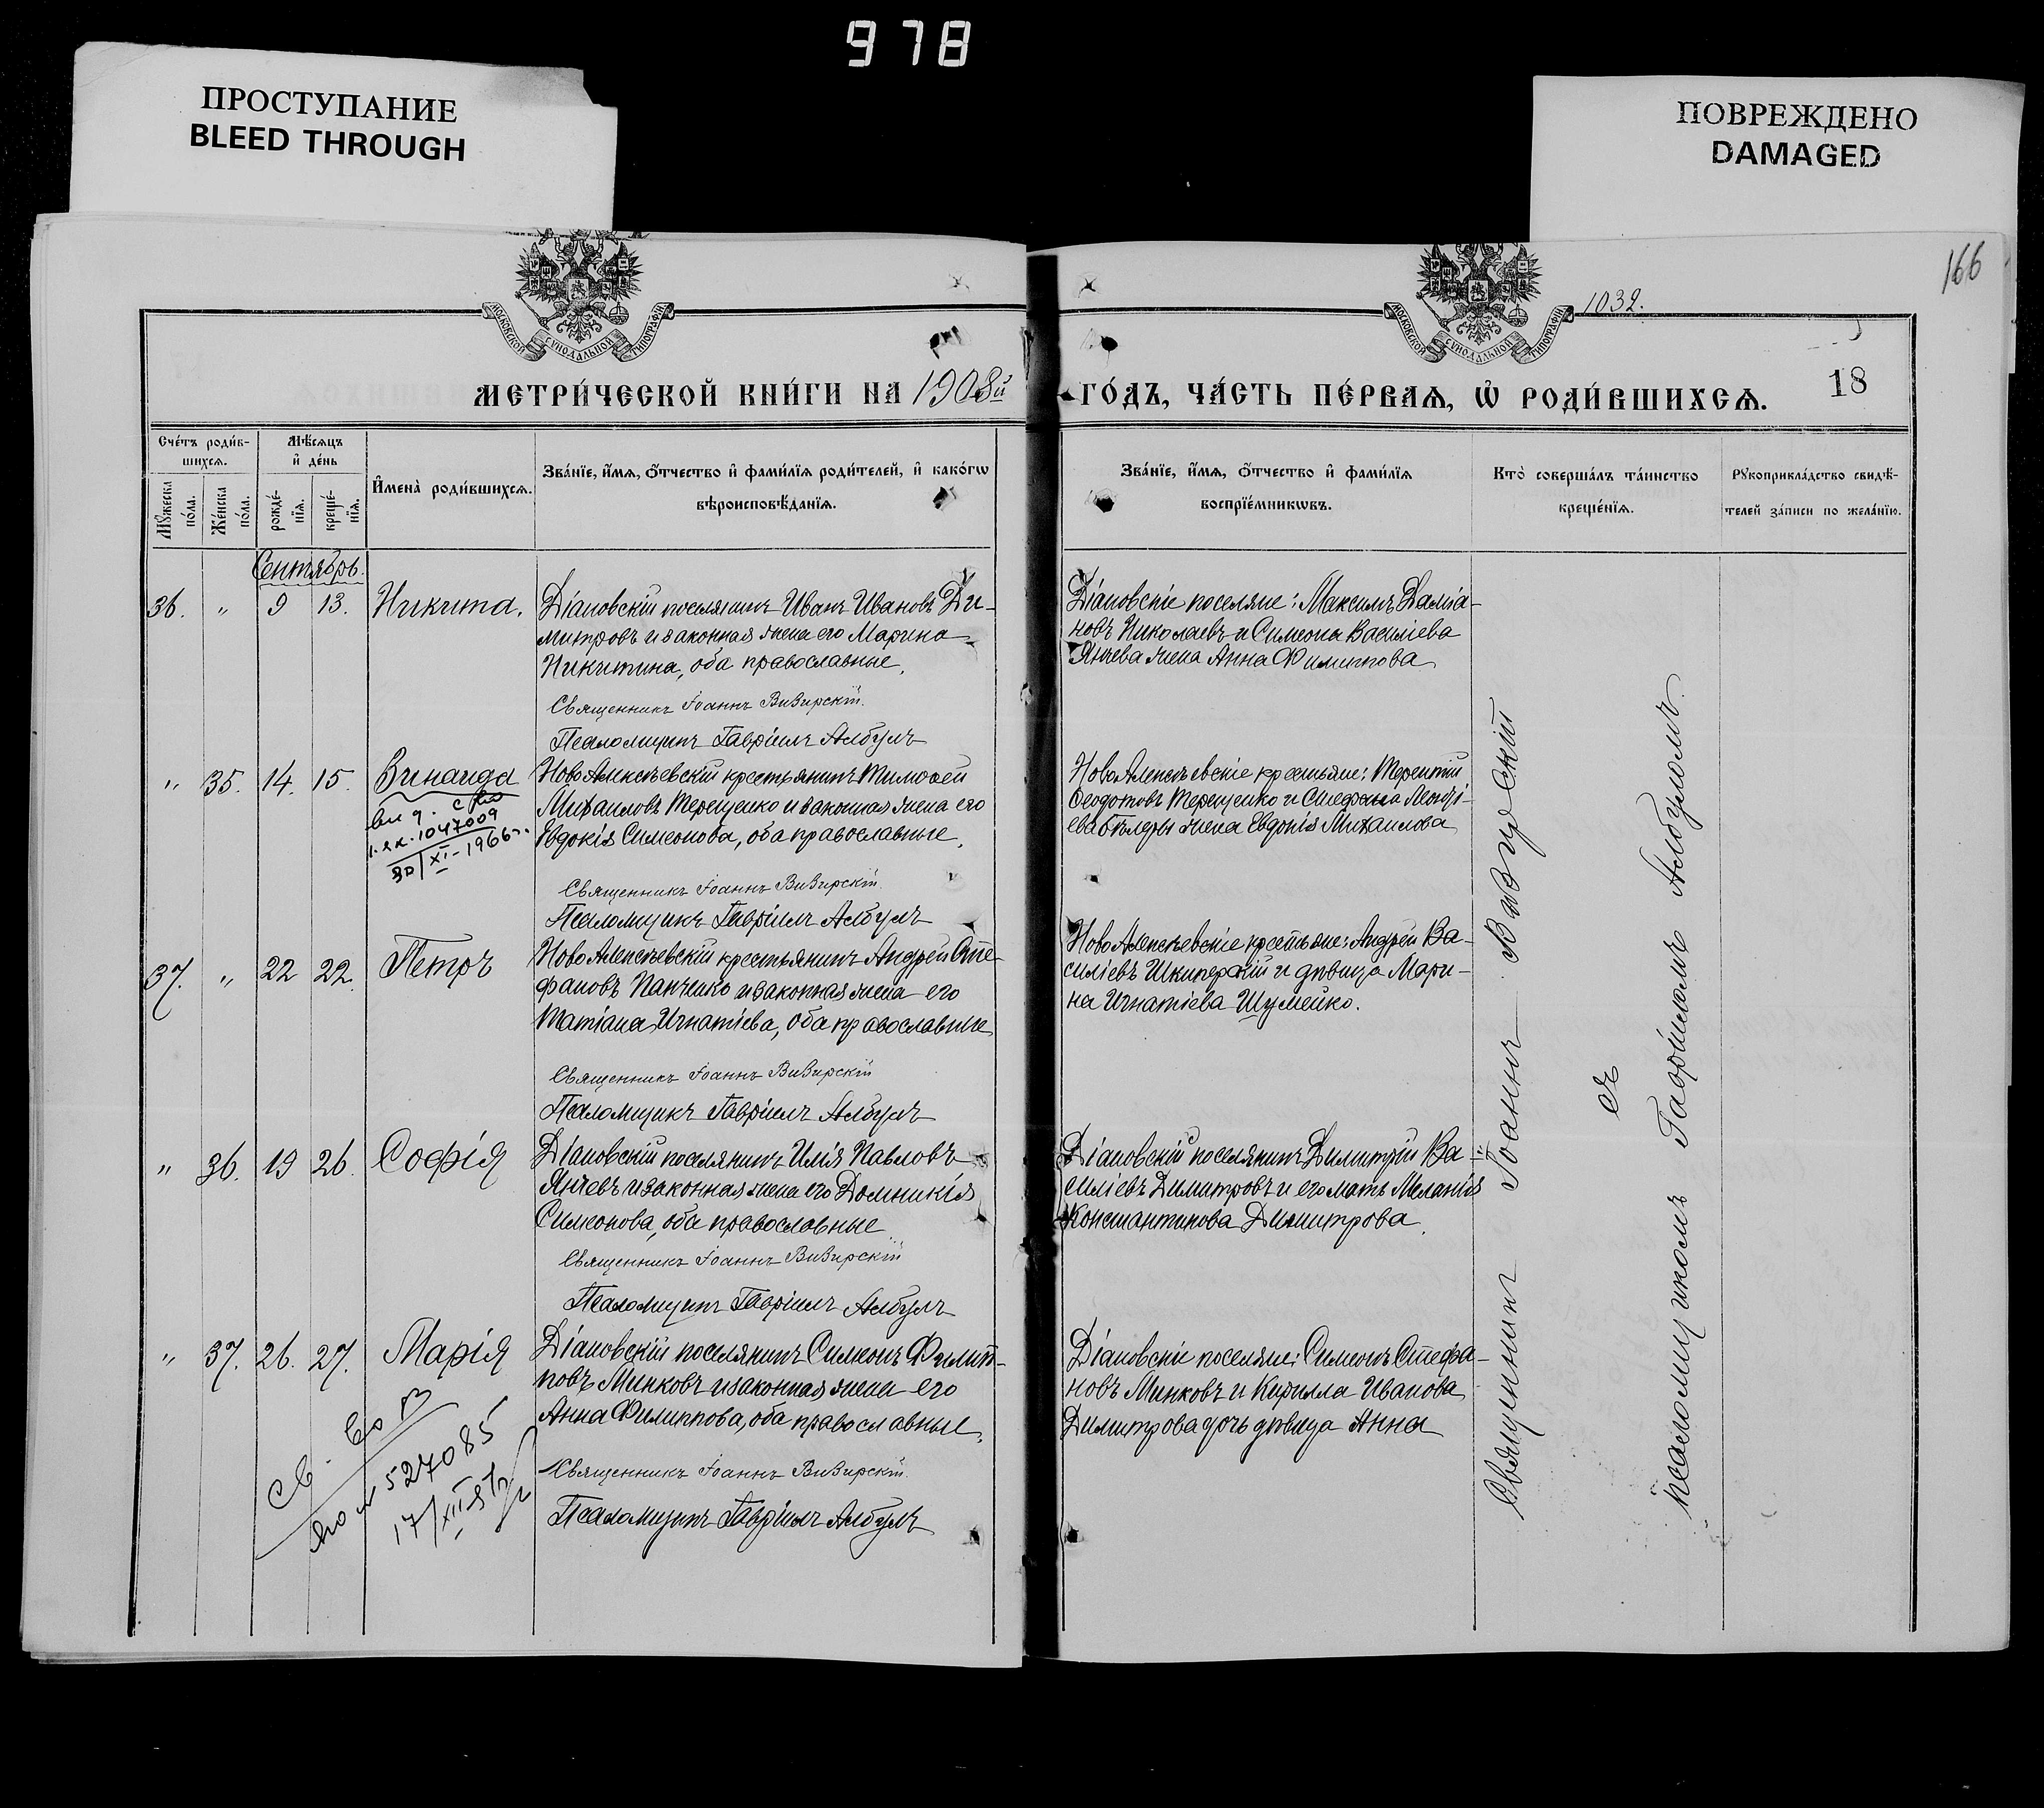 978
ПРОСТУПАНИЕ
BLEED THROUGH
ПОВРЕЖДЕНО
DAMAGED
166
1032.
МОСКОВСКОЙ СѴНОДАЛЬНОЙ ТИПОГРАФІИ
МОСКОВСКОЙ СѴНОДАЛЬНОЙ ТИПОГРАФІИ
МЕТРИ́ЧЕСКОЙ КНИ́ГИ НА 1908й
ГО́ДЪ, ЧА́СТЬ ПЕ́РВАѦ, Ѽ РОДИ́ВШИХСѦ.
18
Сче́тъ роди́в-
шихсѧ.
Мѣ́сѧцъ
и҆ де́нь
Мꙋ́жеска
по́ла.
Же́нска
по́ла.
рожде́-
нїѧ.
креще́-
нїѧ.
И҆мена̀ роди́вшихсѧ.
Зва́нїе, и҆́мѧ, ѻ҆́тчество и҆ фами́лїѧ роди́телей, и҆ како́гѡ
вѣроисповѣ́данїѧ.
Зва́нїе, и҆́мѧ, ѻ҆́тчество и҆ фами́лїѧ
воспрїе́мникѡвъ.
Кто̀ соверша́лъ та́инство
креще́нїѧ.
Рꙋкоприкла́дство свидѣ́-
телей за́писи по жела́нїю.
Сентябрь.
36. „ 9 13. Никита.
Діановскій поселянинъ Иванъ Ивановъ Ди-
митровъ и законная жена его Марина
Никитина, оба православные.
Священникъ Іоаннъ Визирскій.
Псаломщикъ Гавріилъ Албулъ
Діановскіе поселяне: Максимъ Даміа-
новъ Николаевъ и Симеона Василіева
Янчева жена Анна Филиппова
„ 35. 14. 15. Зинаида
1047009
30/XI-1966г.
НовоАлексѣевскій крестьянинъ Тимоѳей
Михаиловъ Терещенко и законная жена его
Евдокія Симеонова, оба православные.
Священникъ Іоаннъ Визирскій.
Псаломщикъ Гавріилъ Албулъ
НовоАлексѣевскіе крестьяне: Терентій
Ѳеодотовъ Терещенко и Стефана
жена Евдокія Михаилова
37. „ 22 22. Петръ
НовоАлексѣевскій крестьянинъ Андрей Сте-
фановъ Панченко и законная жена его
Татіана Игнатіева, оба православные
Священникъ Іоаннъ Визирскій
Псаломщикъ Гавріилъ Албулъ
НовоАлексѣевскіе крестьяне: Андрей Ва-
силіевъ Шкиперскій и дѣвица Мари-
на Игнатіева Шумейко.
„ 36. 19 26. Софія
Діановскій поселянинъ Илія Павловъ
Янчевъ и законная жена его Домникія
Симеонова, оба православные
Священникъ Іоаннъ Визирскій
Псаломщикъ Гавріилъ Албулъ
Діановскій поселянинъ Димитрій Ва-
силіевъ Димитровъ и его мать Меланія
Константинова Димитрова.
„ 37. 26. 27. Марія
Св. во
527085
17/XII
Діановскій поселянинъ Симеонъ Филип-
повъ Минковъ и законная жена его
Анна Филиппова, оба православные.
Священникъ Іоаннъ Визирскій.
Псаломщикъ Гавріилъ Албулъ
Діановскіе поселяне: Симеонъ Стефа-
новъ Минковъ и Кирилла Иванова
Димитрова дочь дѣвица Анна
Священникъ Іоаннъ Визирскій
съ
псаломщикомъ Гавріиломъ Албуломъ.